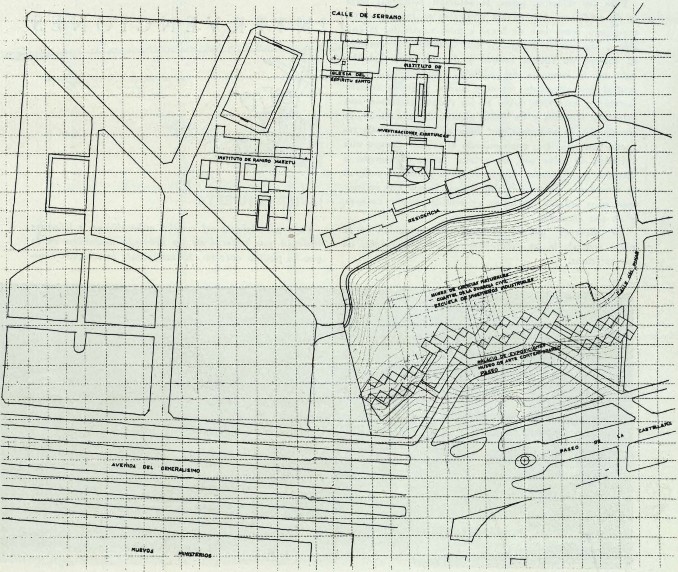 CALLE DE SERRANO
IGLESIA DEL
ESPIRITU SANTO
INSTITUTO DE
INVESTIGACIONES CIENTIFICAS
INSTITUTO DE RAMIRO MAEZTU
RESIDENCIA
MUSEO DE CIENCIAS NATURALES
CUARTEL DE LA GUARDIA CIVIL
ESCUELA DE INGENIEROS INDUSTRIALES
CALLE DEL PINAR
PALACIO DE EXPOSICIONES
MUSEO DE ARTE CONTEMPORANEO
PASEO DE LA CASTELLANA
AVENIDA DEL GENERALISIMO
NUEVOS MINISTERIOS